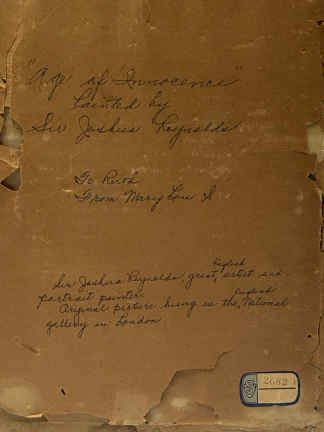 "Age of Innocence"
Painted by
Sir Joshua Reynolds
To Ruth
From Mary Lou
English
Sir Joshua Reynolds, great, artist and
portrait painter.
English
Original picture hung in the, National
gallery in London
2682